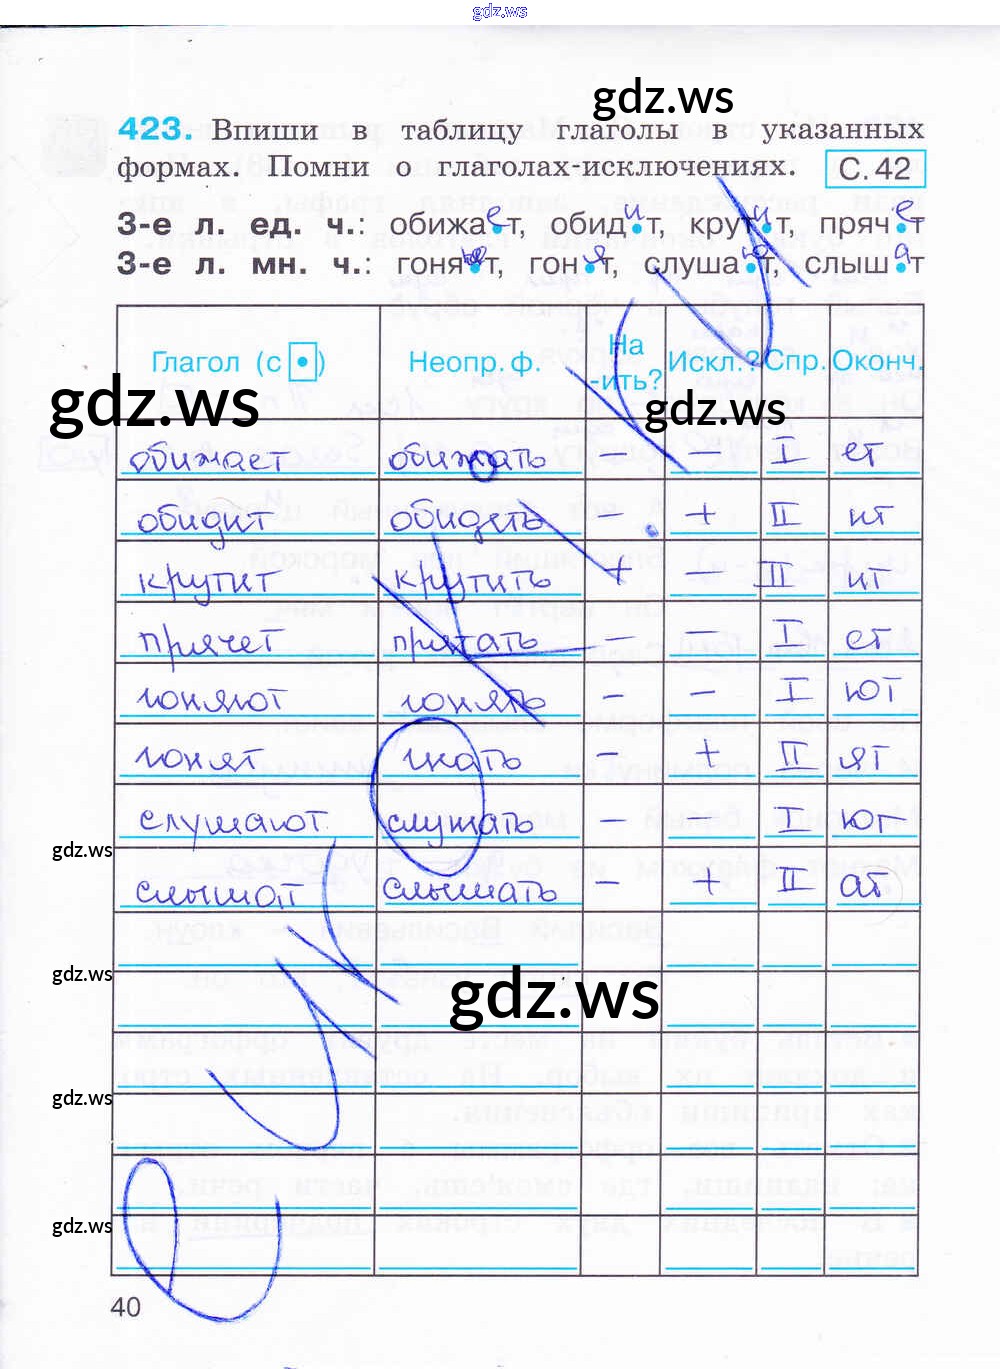 gdz.ws
gdz.ws
423. Впиши в таблицу глаголы в указанных
формах. Помни о глаголах исключениях. С. 42
3-е л. ед. ч.: обижает, обидит, крутит, прячет
3-е л. мн. ч.: гоняют, гонят, слушают, слышат
Глагол (с •) Неопр. ф. На -ить? Искл.? Спр. Оконч.
gdz.ws gdz.ws
обижает обижать – – I ет
обидит обидеть – + II ит
крутит крутить + – II ит
прячет прятать – – I ет
гоняют гонять – – I ют
гонят гнать – + II ят
слушают слушать – – I ют
gdz.ws
слышат слышать – + II ат
gdz.ws
gdz.ws
gdz.ws
gdz.ws
40